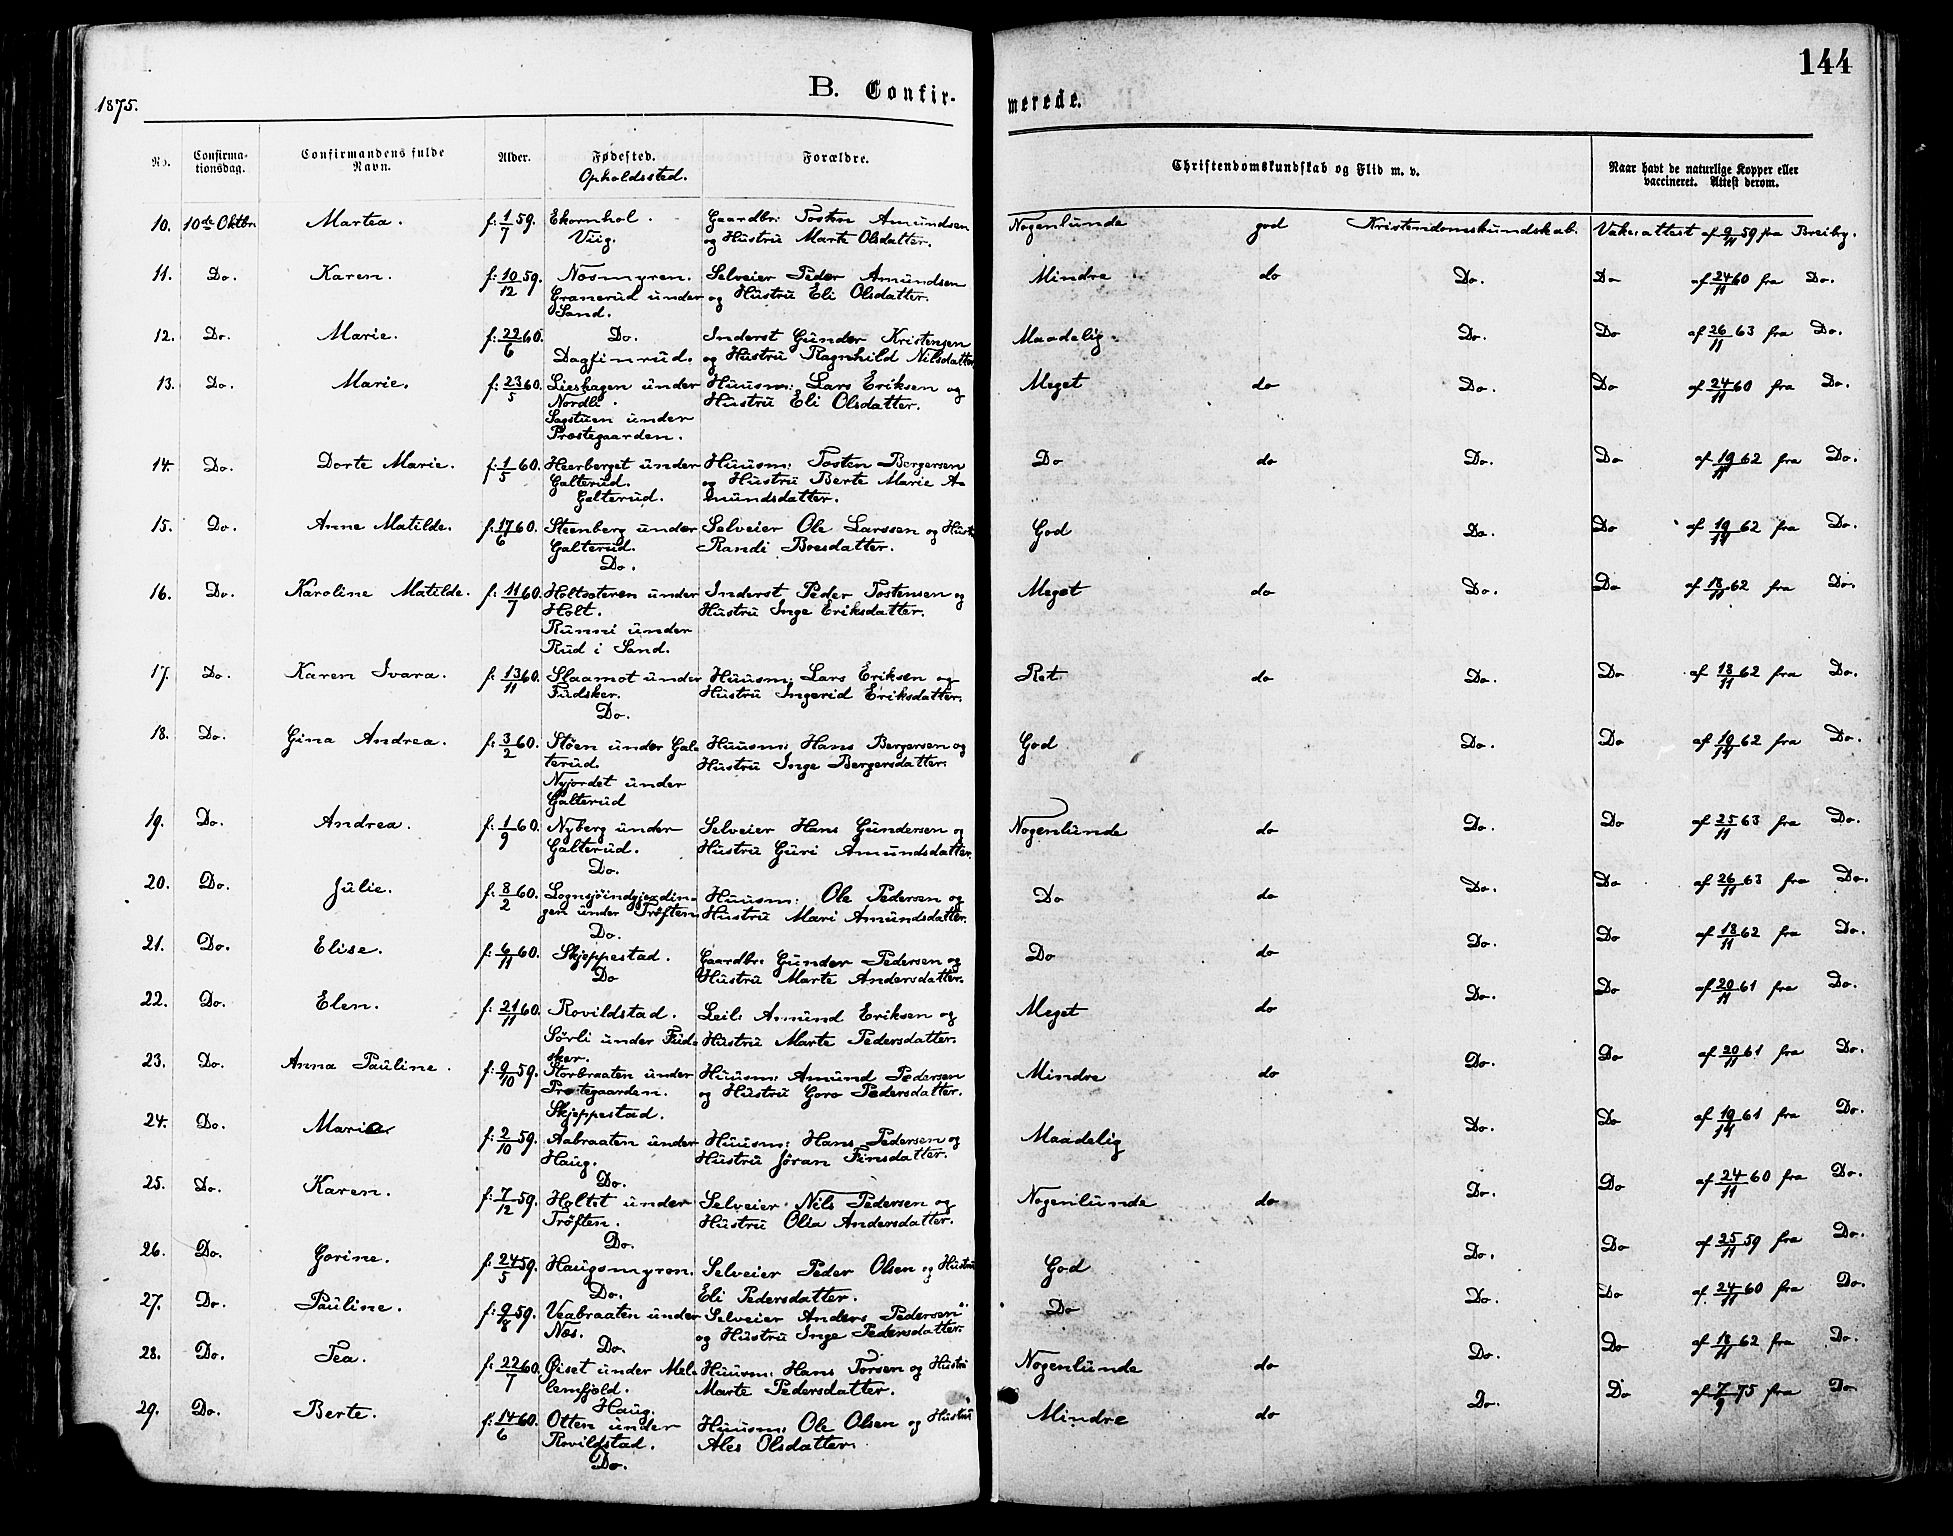 144
1875.
B. Confir-
merede.
No.
Confirma-
tionsdag.
Confirmandens fulde
Navn.
Alder.
Fødested.
Opholdssted.
Forældre.
Christendomskundskab og Flid m. v.
Naar havt de naturlige Kopper eller
vaccineret. Attest derom.
10. 10de Oktbr. Martea. f: 1/7 59. Ekornhol. Gaardbr: Tosten Amundsen Nogenlunde god Kristendomskundskab. Vakc: attest af 9/11 59 fra Breiby.
Viig. og Hustru Marte Olsdatter.
11. Do. Karen. f: 10/12 59. Næsmyren. Selveier Peder Amundsen Mindre do Do. Do af 24/11 60 fra Do.
Granerud under og Hustru Eli Olsdatter.
Sand.
12. Do. Marie. f: 22/6 60. Do. Inderst Gunder Kristensen Maadelig. Do. Do af 26/11 63 fra Do.
Dagfinrud. og Hustru Ragnhild Nilsdatter
13. Do. Marie. f: 23/5 60. Lieshagen under Huusm: Lars Eriksen og Meget do Do. Do af 24/11 60 fra Do.
Nordli. Hustru Eli Olsdatter.
Sagstuen under
Præstegaarden.
14. Do. Dorte Marie. f: 1/5 60. Heerberget under Huusm: Tosten Bergersen Do do Do. Do af 19/11 62 fra Do.
Galterud. og Hustru Berte Marie A-
Galterud. mundsdatter.
15. Do. Anne Matilde. f: 17/6 60. Steenberg under Selveier Ole Larssen og Hustr God Do. Do af 19/11 62 fra Do.
Galterud. Randi Boesdatter.
Do.
16. Do. Karoline Matilde. f: 11/7 60. Holtsæteren under Inderst Peder Tostensen og Meget do Do. Do af 18/11 62 fra Do.
Holt. Hustru Inge Eriksdatter.
Runni under
Rud i Sand.
17. Do. Karen Ivara. f: 13/11 60. Slaamot under Huusm: Lars Eriksen og Ret do Do. Do af 18/11 62 fra Do.
Fudsker. Hustru Ingerid Eriksdatter.
Do.
18. Do. Gina Andrea. f: 3/2 60. Støen under Gal- Huusm: Hans Bergersen og God Do. Do af 19/11 62 fra Do.
terud. Hustru Inge Bergersdatter.
Nyjordet under
Galterud
19. Do. Andrea. f: 1/9 60. Nyberg under Selveier Hans Gundersen og Nogenlunde do Do. Do af 25/11 63 fra Do.
Galterud. Hustru Guri Amundsdatter.
Do.
20. Do. Julie. f: 8/2 60. Lognsjöindgjerdin- Huusm: Ole Pedersen og Do do Do. Do af 26/11 63 fra Do.
gen under Trøften Hustru Mari Amundsdatter.
Do.
21. Do. Elise. f: 6/11 60. Skjeppestad. Gaardbr: Gunder Pedersen og Do do Do. Do af 18/11 62 fra Do.
Do Hustru Marte Andersdatter.
22. Do. Elen. f: 21/11 60. Rovildstad. Leil: Amund Eriksen og Meget do Do. Do af 20/11 61 fra Do.
Sörli under Fud- Hustru Marte Pedersdatter.
sker.
23. Do. Anna Pauline. f: 9/10 59. Storbraaten under Huusm: Amund Pedersen Mindre do Do. Do af 20/11 61 fra Do.
Præstegaarden. og Hustru Goro Pedersdatter.
Skjeppestad.
24. Do. Maria. f: 2/10 59. Aabraaten under Huusm: Hans Pedersen og Maadelig Do. Do af 19/11 61 fra Do.
Haug. Hustru Jöran Finsdatter.
Do.
25. Do. Karen. f: 7/12 59. Holtet under Selveier Nils Pedersen og Nogenlunde do Do. Do af 24/11 60 fra Do.
Trøften. Hustru Olia Andersdatter.
Do.
26. Do. Gorine. f: 24/5 59. Haugsmyren. Selveier Peder Olsen og Hustru God Do. Do af 25/11 59 fra Do.
Do. Eli Pedersdatter.
27. Do. Pauline. f: 9/8 59. Veabraaten under Selveier Anders Pedersen Do Do. Do af 24/11 60 fra Do.
Næs. og Hustru Inge Pedersdatter.
Do.
28. Do. Tea. f: 22/7 60. Øiset under Mel- Huusm: Hans Torsen og Hustru Nogenlunde do Do. Do af 18/11 62 fra Do.
lemfjold. Marte Pedersdatter.
Haug.
29. Do. Berte. f: 14/6 60. Otten under Huusm: Ole Olsen og Hustru Mindre do Do. Do af 7/9 75 fra Do
Rovildstad. Ales Olsdatter.
Do.